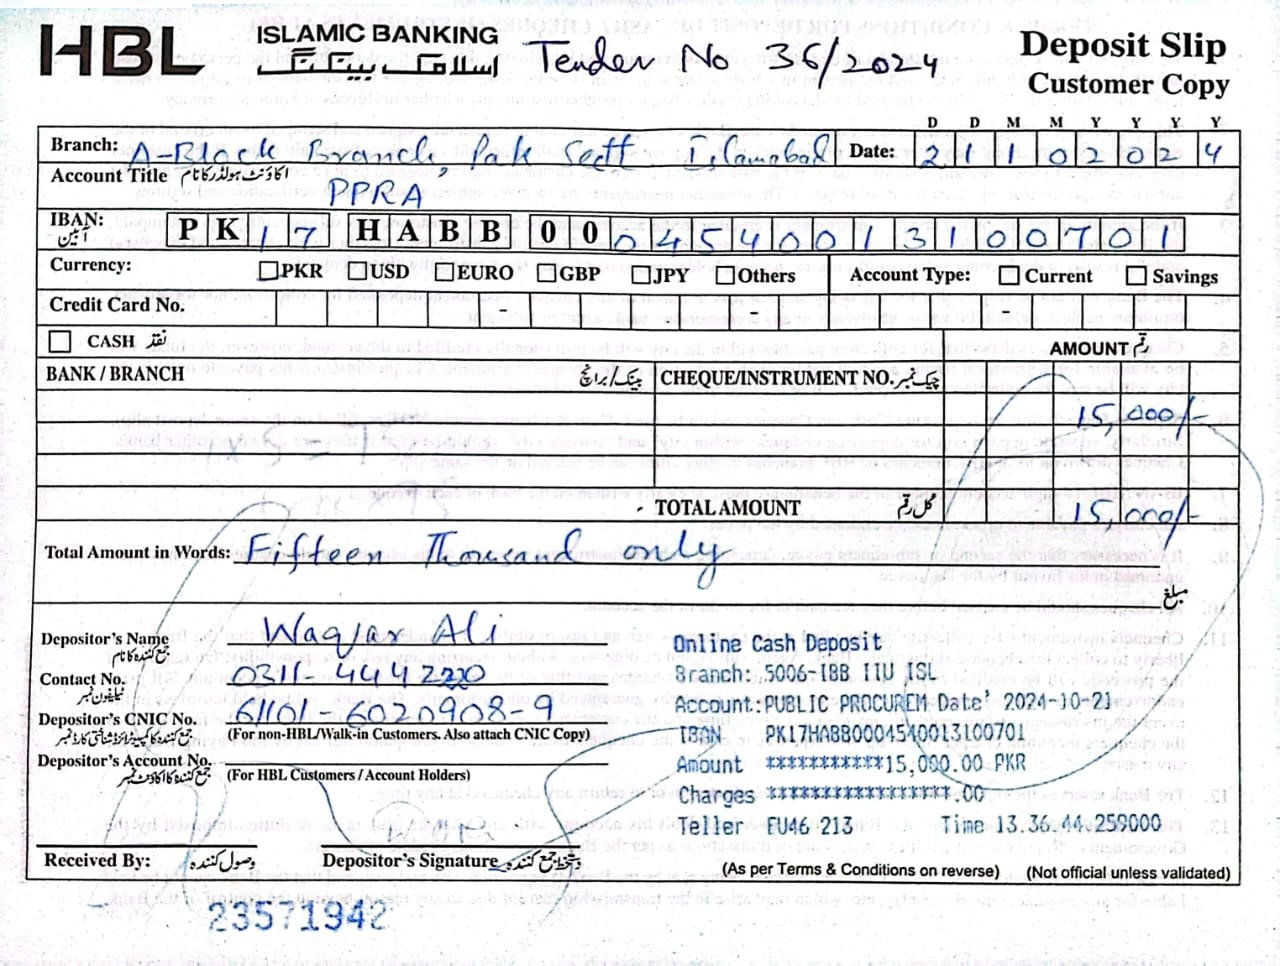 HBL ISLAMIC BANKING
اسلامک بینکنگ
Tender No 36/2024
Deposit Slip
Customer Copy
D D M M Y Y Y Y
Branch: A-Block Branch, Pak Sectt Islamabad Date: 2 1 1 0 2 0 2 4
Account Title اکاؤنٹ ہولڈر کا نام PPRA
IBAN: آئبین P K 1 7 H A B B 0 0 0 4 5 4 0 0 1 3 1 0 0 7 0 1
Currency: PKR USD EURO GBP JPY Others Account Type: Current Savings
Credit Card No. - - -
CASH نقد AMOUNT رقم
BANK / BRANCH بینک/برانچ CHEQUE/INSTRUMENT NO. چیک نمبر
15,000/-
TOTAL AMOUNT کل رقم 15,000/-
Total Amount in Words: Fifteen Thousand only
مبلغ
Depositor's Name Waqar Ali
جمع کنندہ کا نام
Contact No. 0311 4442220
ٹیلیفون نمبر
Depositor's CNIC No. 61101 6020908-9
جمع کنندہ کا کمپیوٹرائزڈ شناختی کارڈ نمبر (For non-HBL/Walk-in Customers. Also attach CNIC Copy)
Depositor's Account No.
جمع کنندہ کا اکاؤنٹ نمبر (For HBL Customers / Account Holders)
Online Cash Deposit
Branch: 5006-IBB IIU ISL
Account.:PUBLIC PROCUREM Date' 2024-10-21
IBAN PK17HABB0004540013100701
Amount ***********15,000.00 PKR
Charges *****************.00
Teller EU46 213 Time 13.36.44.259000
Received By: وصول کنندہ Depositor's Signature دستخط جمع کنندہ (As per Terms & Conditions on reverse) (Not official unless validated)
23571942